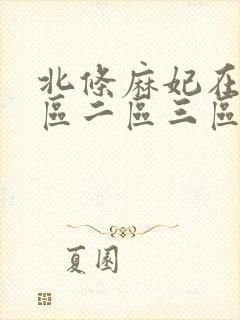 北條麻妃在
區二區三區
夏園